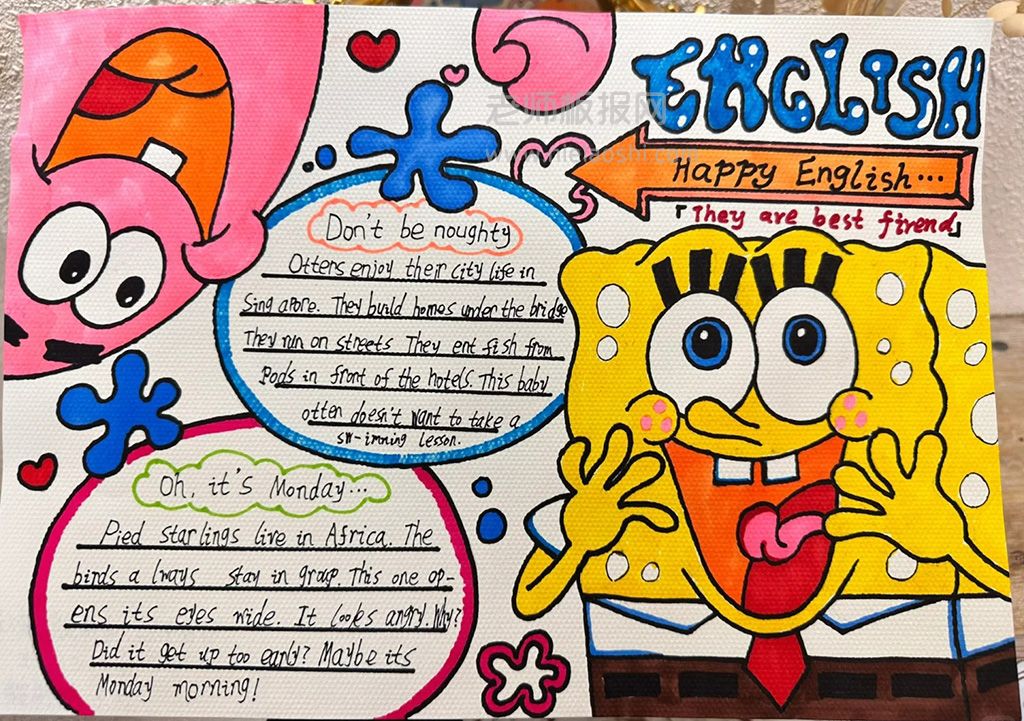 ENGLISH
Happy English...
「They are best firend」
Don't be noughty
Otters enjoy their city life in
Sing apore. They build homes under the bridge
They run on streets They ent fish from
Pods in front of the hotels. This baby
otten doesn't want to take a
sw-imming lesson.
Oh, it's Monday...
Pied starlings live in Africa. The
birds a lways stay in group. This one op-
ens its eyes wide. It lookes angry. Why?
Did it get up too early? Maybe its
Monday morning!
老师板报网